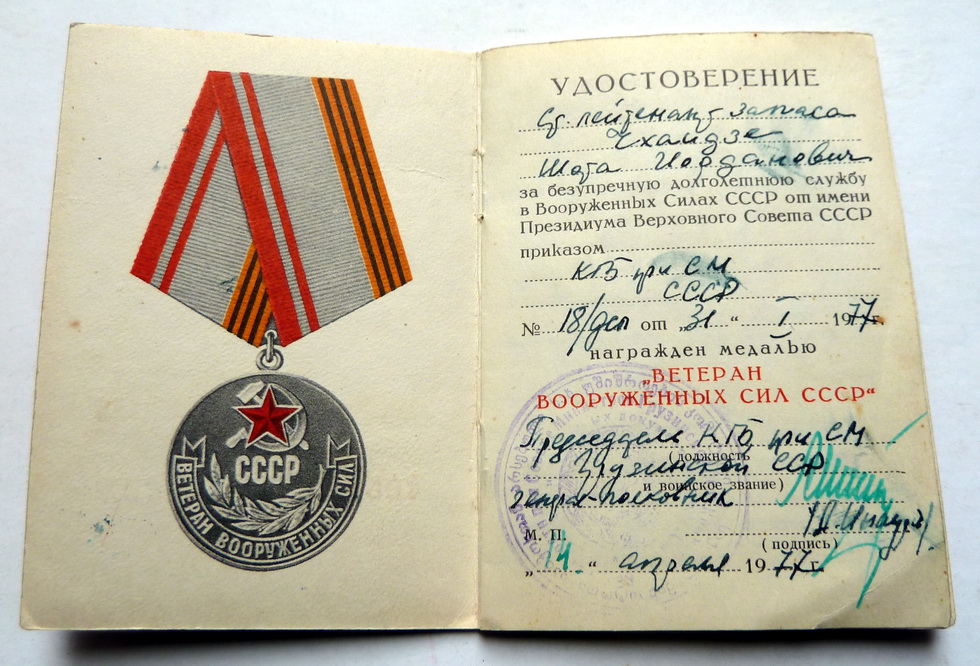 СССР
ВЕТЕРАН ВООРУЖЕННЫХ СИЛ
УДОСТОВЕРЕНИЕ
Ст. лейтенант запаса
Чхаидзе
Шота Иорданович
за безупречную долголетнюю службу
в Вооруженных Силах СССР от имени
Президиума Верховного Совета СССР
приказом
КГБ при СМ
СССР
№ 18/дсп от „31“ I 1977г.
награжден медалью
„ВЕТЕРАН
ВООРУЖЕННЫХ СИЛ СССР“
Председатель КГБ при СМ
(должность
Грузинской ССР
и воинское звание)
генерал-полковник
М. П.
(подпись)
„14.“ апреля 1977г.